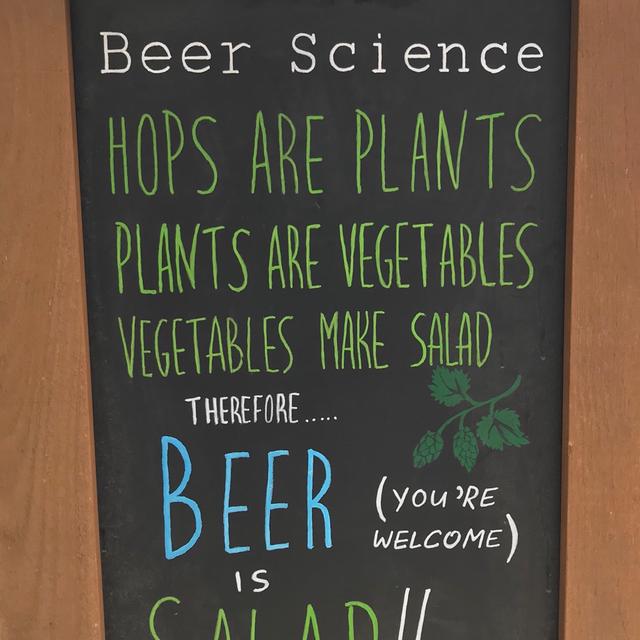 Beer Science
HOPS ARE PLANTS
PLANTS ARE VEGETABLES
VEGETABLES MAKE SALAD
THEREFORE.....
BEER
(YOU'RE
WELCOME)
IS
SALAD!!